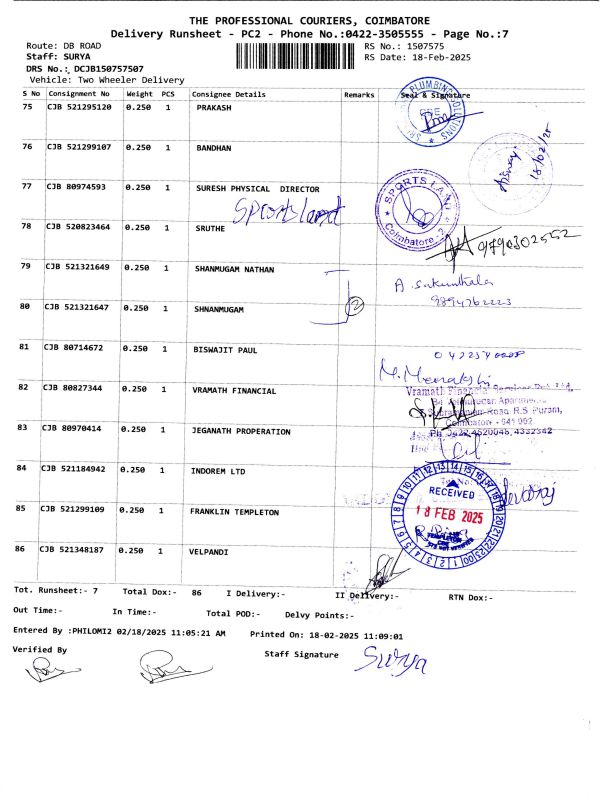 THE PROFESSIONAL COURIERS, COIMBATORE
Delivery Runsheet - PC2 - Phone No.:0422-3505555 - Page No.:7
Route: DB ROAD RS No.: 1507575
Staff: SURYA RS Date: 18-Feb-2025
DRS No.: DCJB150757507
Vehicle: Two Wheeler Delivery
S No Consignment No Weight PCS Consignee Details Remarks Seal & Signature
75 CJB 521295120 0.250 1 PRAKASH
PLUMBING SOLUTIONS
76 CJB 521299107 0.250 1 BANDHAN
18/02/25
77 CJB 80974593 0.250 1 SURESH PHYSICAL DIRECTOR
Sportsland
SPORTS LAND
Coimbatore - 2
78 CJB 520823464 0.250 1 SRUTHE
79 CJB 521321649 0.250 1 SHANMUGAM NATHAN
A. Sakunthala
80 CJB 521321647 0.250 1 SHNANMUGAM
2
81 CJB 80714672 0.250 1 BISWAJIT PAUL
M. Meenakshi
82 CJB 80827344 0.250 1 VRAMATH FINANCIAL
Vramath Financial Services Pvt. Ltd.
R.S. Puram,
Coimbatore - 641 002
83 CJB 80970414 1 0.250 JEGANATH PROPERATION
84 CJB 521184942 0.250 1 INDOREM LTD
RECEIVED
18 FEB 2025
85 CJB 521299109 0.250 1 FRANKLIN TEMPLETON
86 CJB 521348187 0.250 1 VELPANDI
Tot. Runsheet:- 7 Total Dox:- 86 I Delivery:- II Delivery:- RTN Dox:-
Out Time:- In Time:- Total POD:- Delvy Points:-
Entered By :PHILOMI2 02/18/2025 11:05:21 AM Printed On: 18-02-2025 11:09:01
Verified By Staff Signature Surya